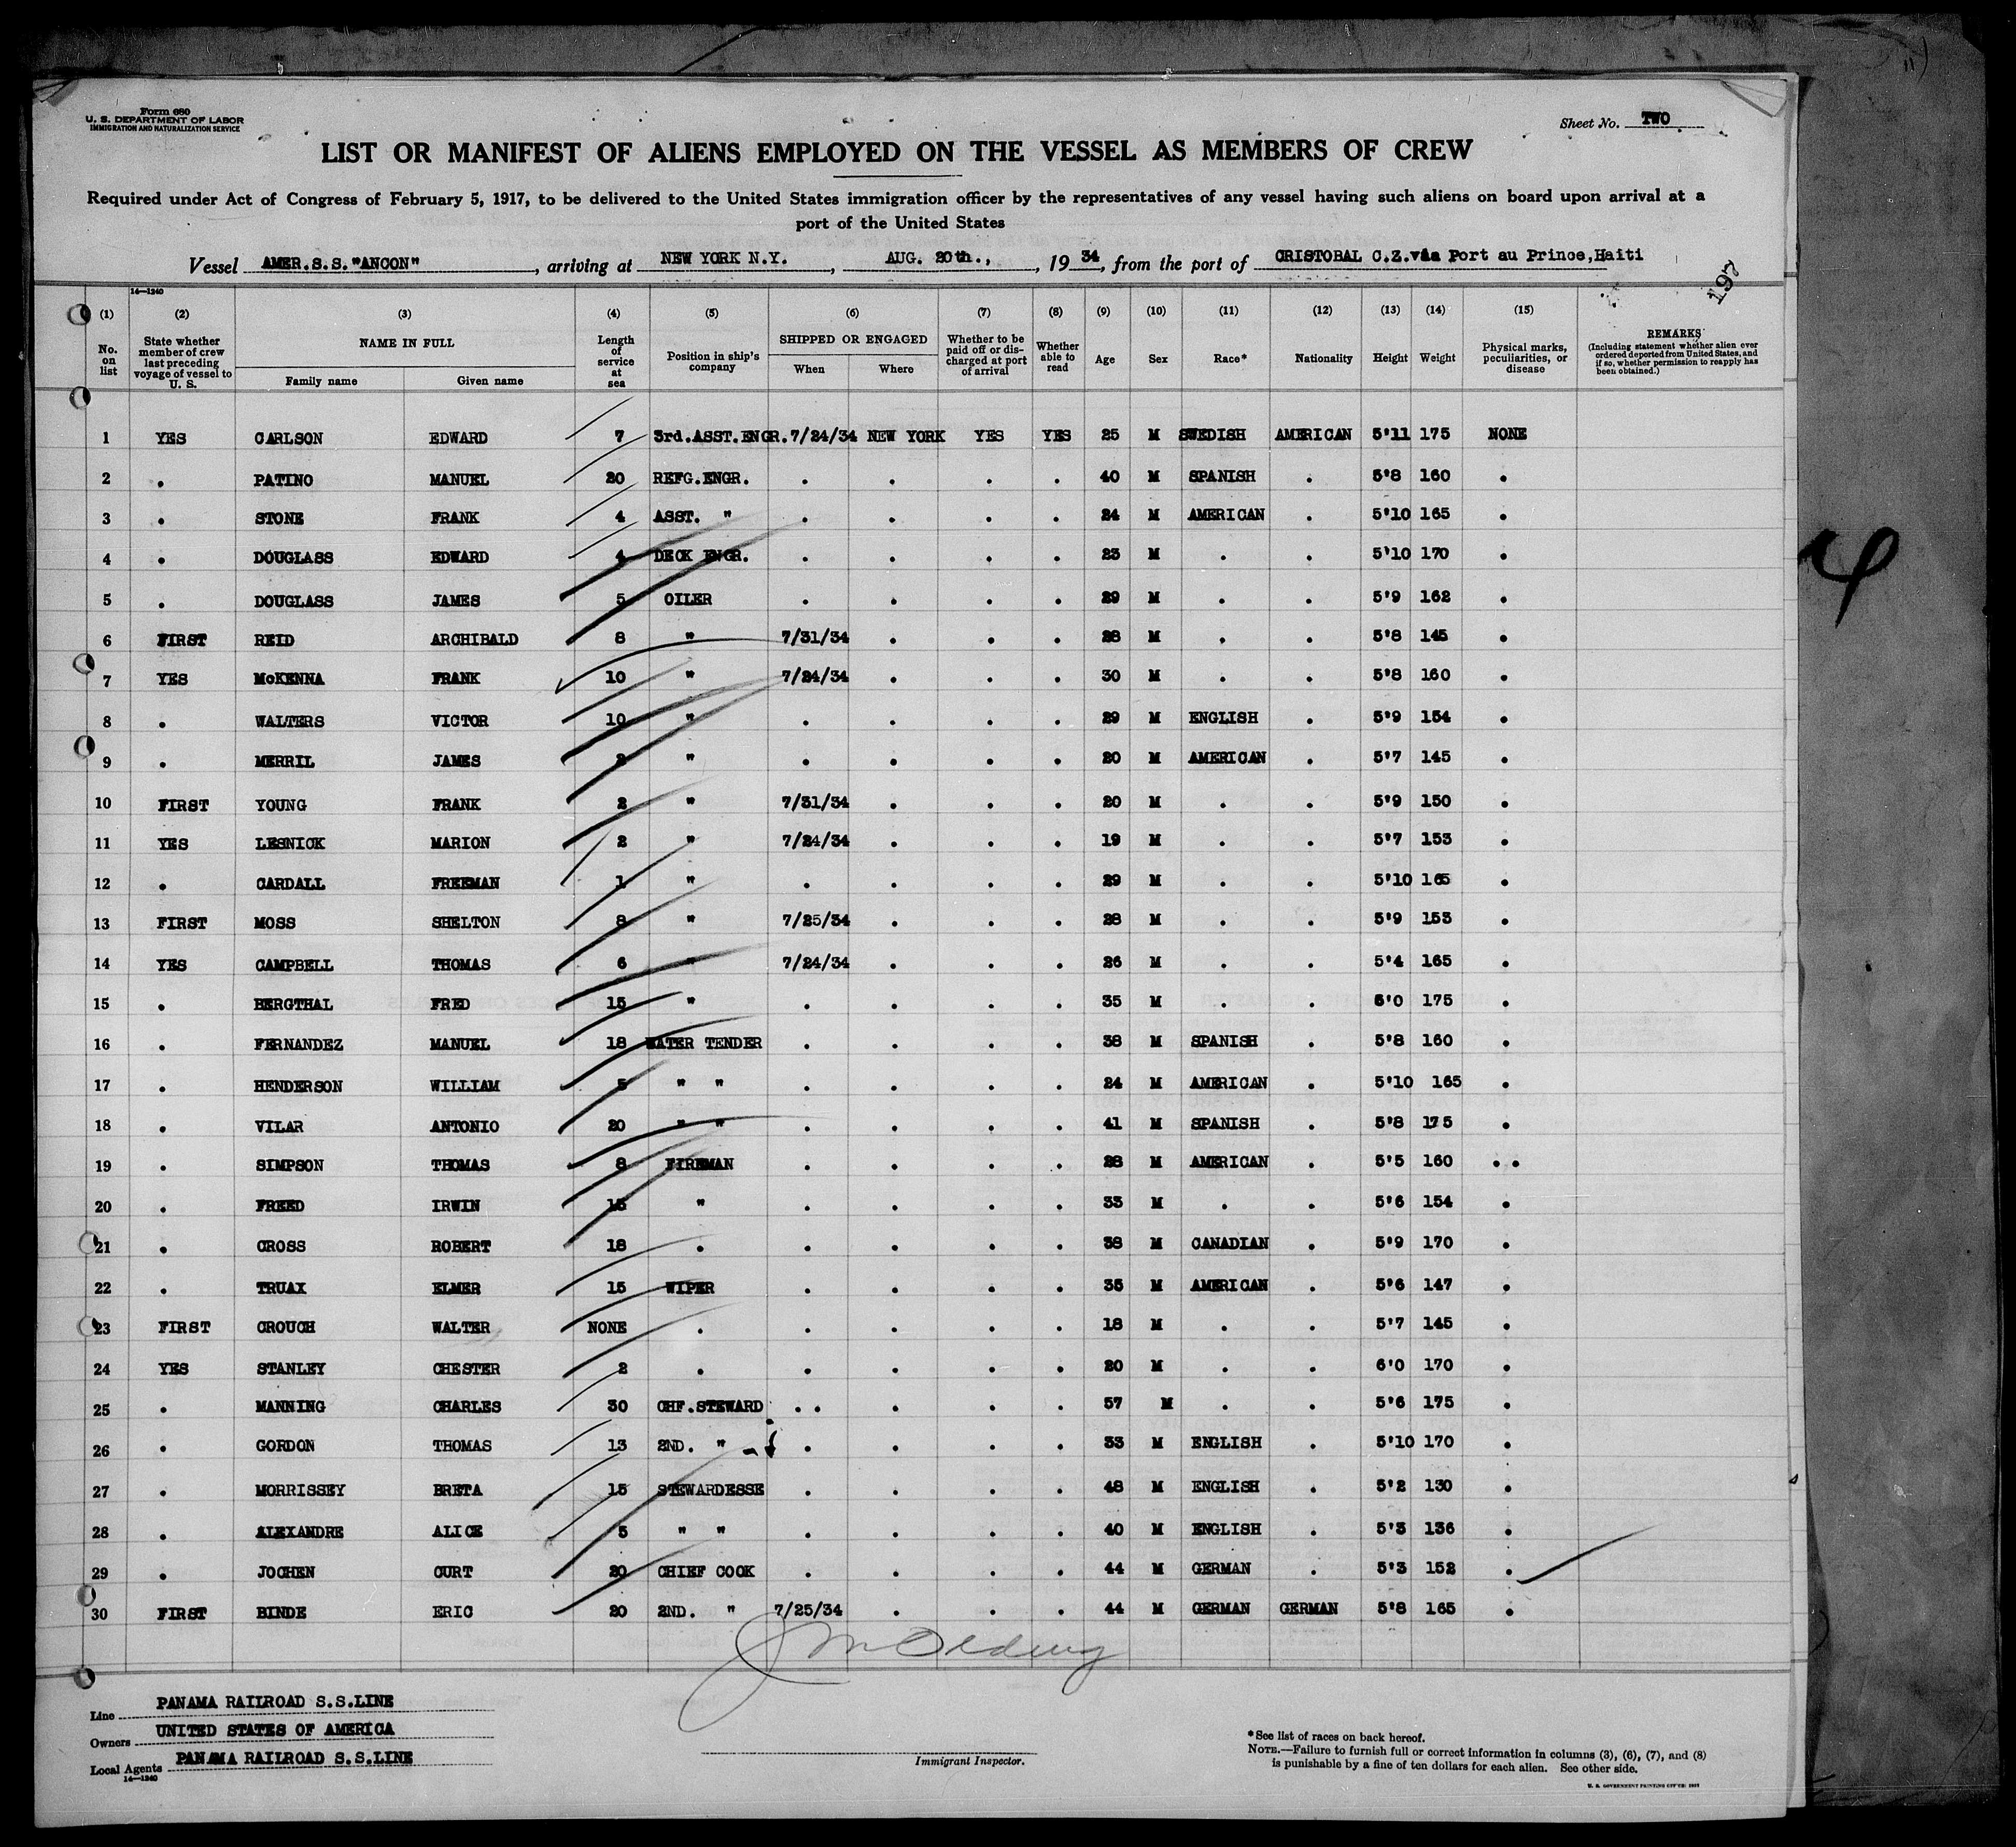 Form 680
U. S. DEPARTMENT OF LABOR
IMMIGRATION AND NATURALIZATION SERVICE
Sheet No. TWO
LIST OR MANIFEST OF ALIENS EMPLOYED ON THE VESSEL AS MEMBERS OF CREW
Required under Act of Congress of February 5, 1917, to be delivered to the United States immigration officer by the representatives of any vessel having such aliens on board upon arrival at a
port of the United States
Vessel AMER.S.S."ANCON", arriving at NEW YORK N.Y., AUG. 20th., 1934, from the port of CRISTOBAL C.Z.via Port au Prince,Haiti
197
14—1240
(1) (2) (3) (4) (5) (6) (7) (8) (9) (10) (11) (12) (13) (14) (15)
No. on list State whether member of crew last preceding voyage of vessel to U. S. NAME IN FULL Family name Given name Length of service at sea Position in ship's company SHIPPED OR ENGAGED When Where Whether to be paid off or discharged at port of arrival Whether able to read Age Sex Race* Nationality Height Weight Physical marks, peculiarities, or disease REMARKS (Including statement whether alien ever ordered deported from United States, and if so, whether permission to reapply has been obtained.)
1 YES CARLSON EDWARD 7 3rd.ASST.ENGR. 7/24/34 NEW YORK YES YES 25 M SWEDISH AMERICAN 5'11 175 NONE
2 . PATINO MANUEL 20 REFG.ENGR. . . . . 40 M SPANISH . 5'8 160 .
3 . STONE FRANK 4 ASST. " . . . . 24 M AMERICAN . 5'10 165 .
4 . DOUGLASS EDWARD 4 DECK ENGR. . . . . 23 M . . 5'10 170 .
5 . DOUGLASS JAMES 5 OILER . . . . 29 M . . 5'9 162 .
6 FIRST REID ARCHIBALD 8 " 7/31/34 . . . 28 M . . 5'8 145 .
7 YES McKENNA FRANK 10 " 7/24/34 . . . 30 M . . 5'8 160 .
8 . WALTERS VICTOR 10 " . . . . 29 M ENGLISH . 5'9 154 .
9 . MERRIL JAMES 2 " . . . . 20 M AMERICAN . 5'7 145 .
10 FIRST YOUNG FRANK 2 " 7/31/34 . . . 20 M . . 5'9 150 .
11 YES LESNICK MARION 2 " 7/24/34 . . . 19 M . . 5'7 153 .
12 . CARDALL FREEMAN 1 " . . . . 29 M . . 5'10 165 .
13 FIRST MOSS SHELTON 8 " 7/25/34 . . . 28 M . . 5'9 153 .
14 YES CAMPBELL THOMAS 6 " 7/24/34 . . . 26 M . . 5'4 165 .
15 . BERGTHAL FRED 15 " . . . . 35 M . . 6'0 175 .
16 . FERNANDEZ MANUEL 18 WATER TENDER . . . . 38 M SPANISH . 5'8 160 .
17 . HENDERSON WILLIAM 5 " " . . . . 24 M AMERICAN . 5'10 165 .
18 . VILAR ANTONIO 20 " " . . . . 41 M SPANISH . 5'8 175 .
19 . SIMPSON THOMAS 8 FIREMAN . . . . 28 M AMERICAN . 5'5 160 . .
20 . FREED IRWIN 15 " . . . . 33 M . . 5'6 154 .
21 . CROSS ROBERT 18 . . . . . 38 M CANADIAN . 5'9 170 .
22 . TRUAX ELMER 15 WIPER . . . . 35 M AMERICAN . 5'6 147 .
23 FIRST CROUCH WALTER NONE . . . . . 18 M . . 5'7 145 .
24 YES STANLEY CHESTER 2 . . . . . 20 M . . 6'0 170 .
25 . MANNING CHARLES 30 CHF.STEWARD . . . . . 57 M . . 5'6 175 .
26 . GORDON THOMAS 13 2ND. " . . . . 33 M ENGLISH . 5'10 170 .
27 . MORRISSEY BRETA 15 STEWARDESSE . . . . 48 M ENGLISH . 5'2 130 .
28 . ALEXANDRE ALICE 5 " " . . . . 40 M ENGLISH . 5'3 136 .
29 . JOCHEN CURT 20 CHIEF COOK . . . . 44 M GERMAN . 5'3 152 .
30 FIRST BINDE ERIC 20 2ND. " 7/25/34 . . . 44 M GERMAN GERMAN 5'8 165 .
Line PANAMA RAILROAD S.S.LINE
Owners UNITED STATES OF AMERICA
Local Agents PANAMA RAILROAD S.S.LINE
14—1240
Immigrant Inspector.
*See list of races on back hereof.
NOTE.—Failure to furnish full or correct information in columns (3), (6), (7), and (8)
is punishable by a fine of ten dollars for each alien. See other side.